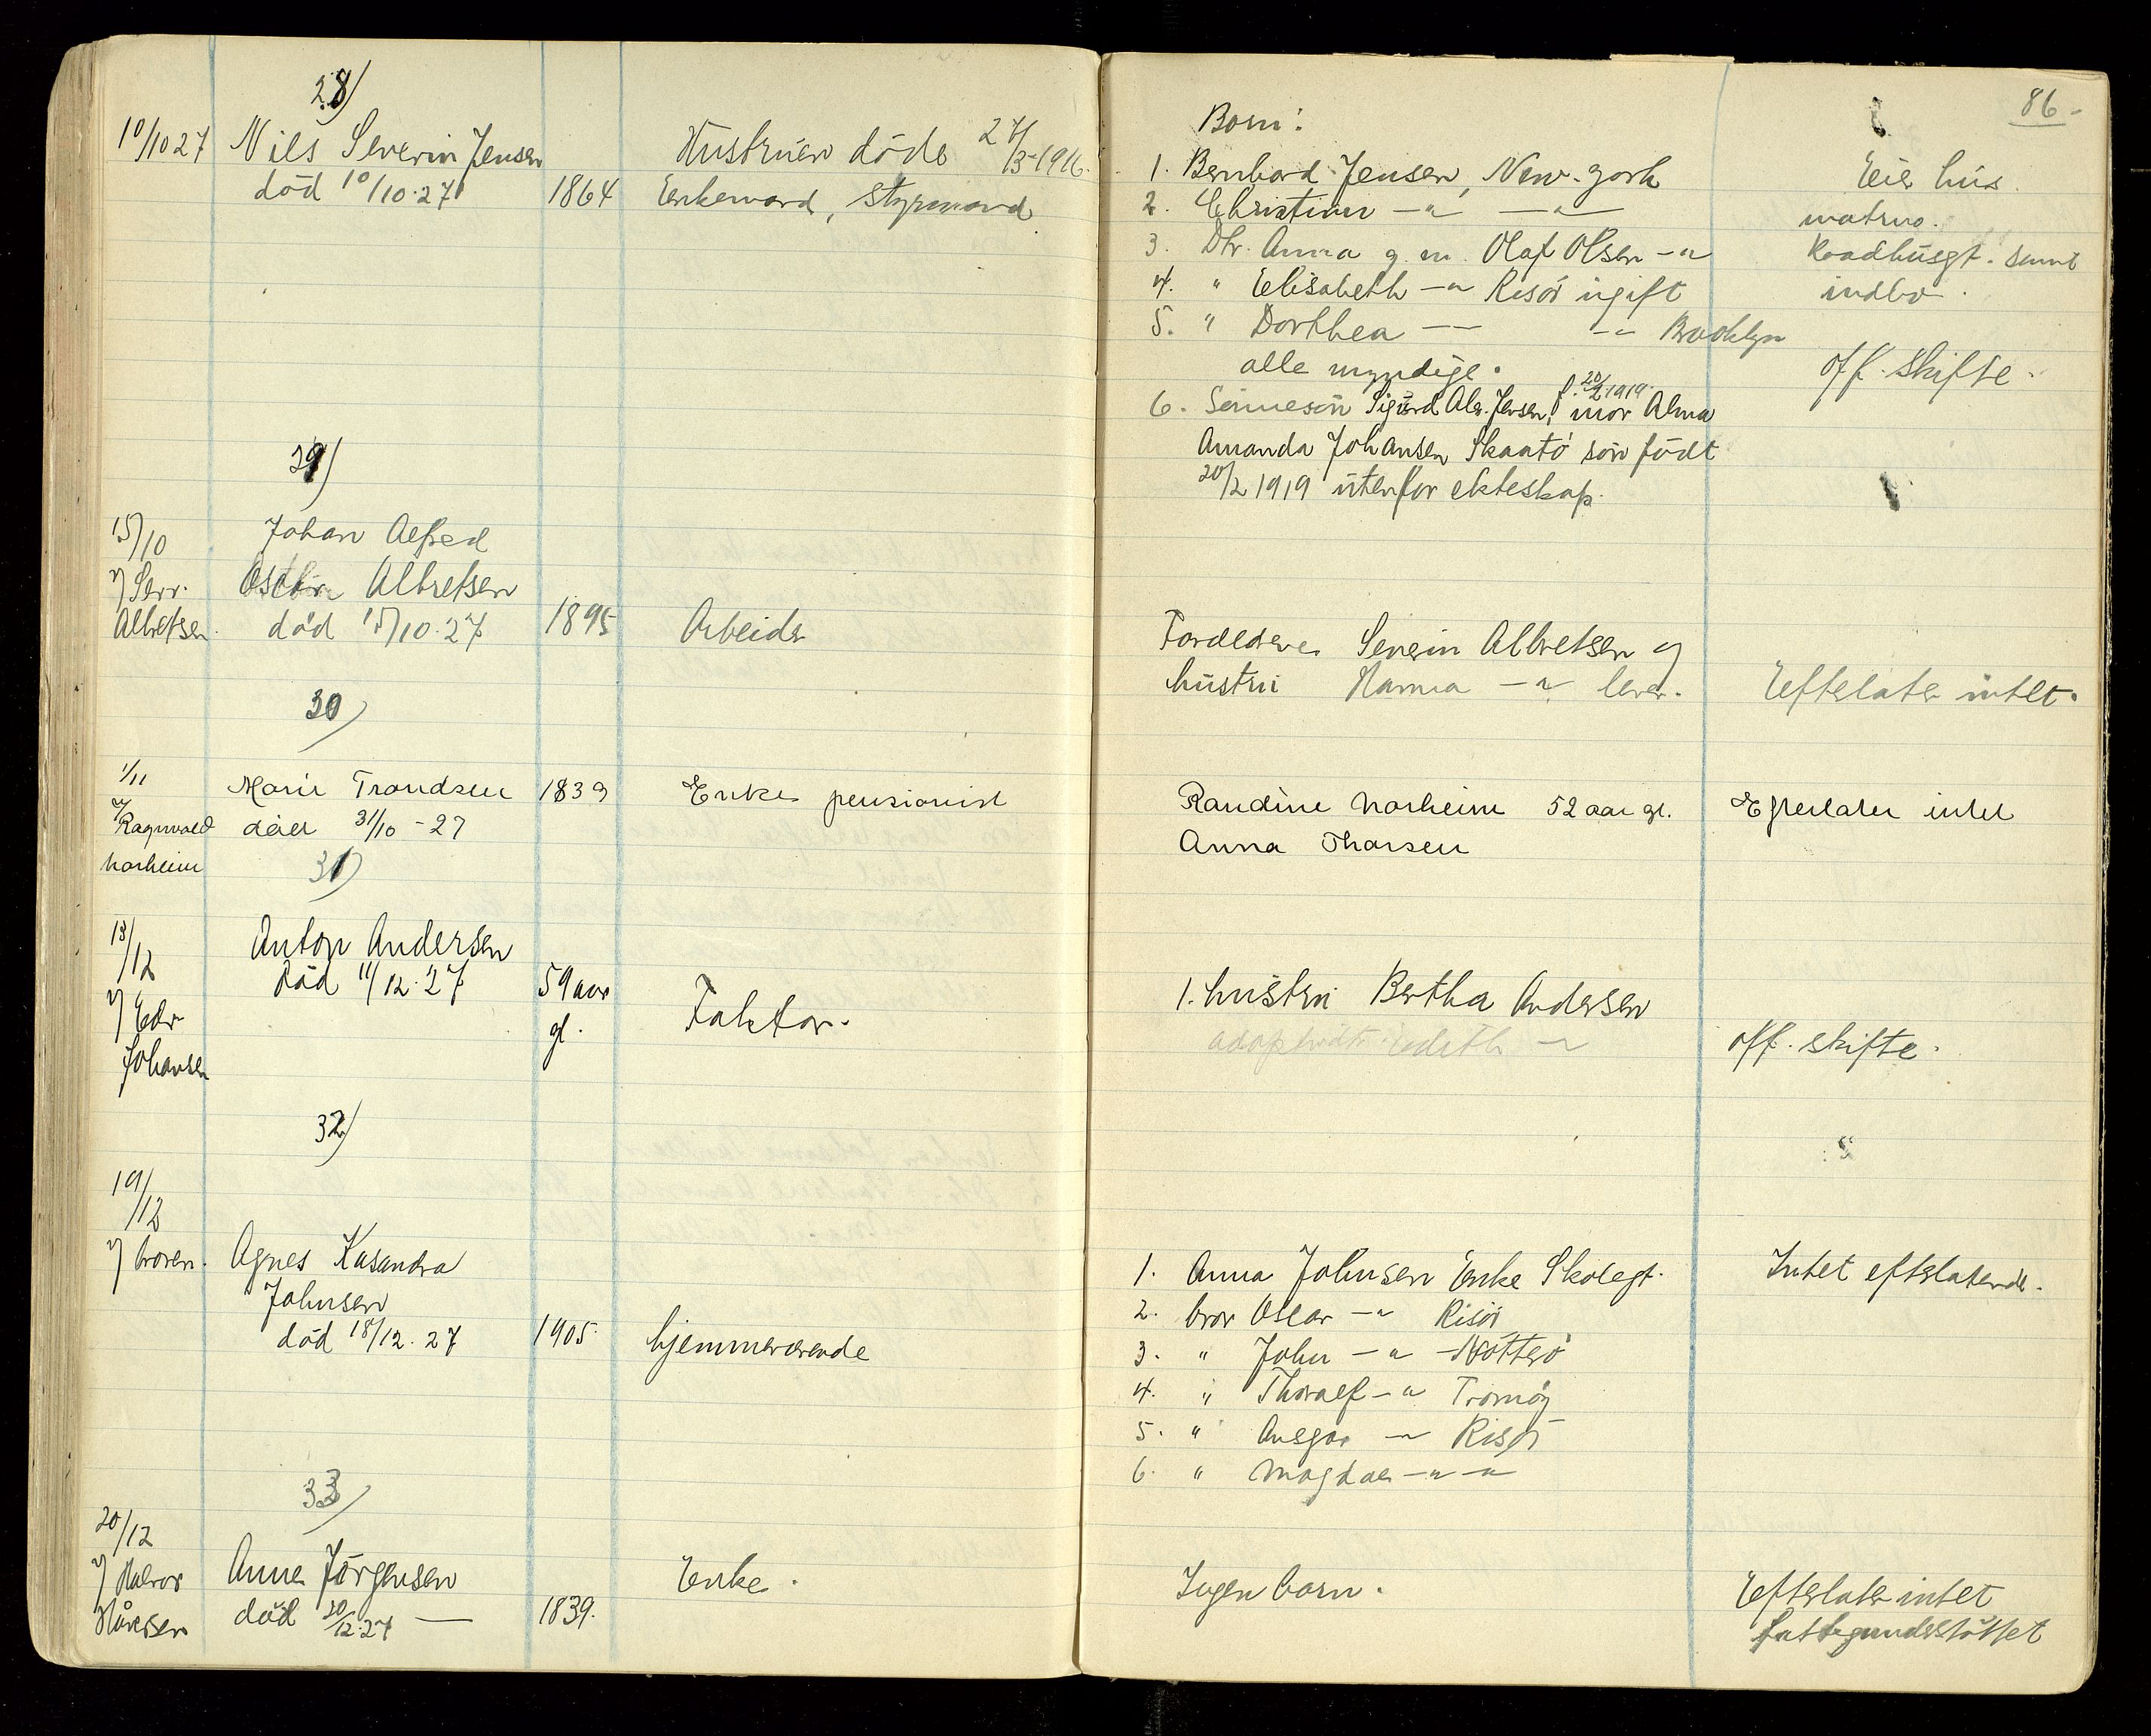 86-
28)
10/10 27 Nils Severin Jensen Hustruen döde 27/3-1916.
död 10/10-27 1864 Enkemand, styrmand
Barn:
1. Bernhard Jensen, New-york
2. Christian -"- -"-
3. Dtr. Anna g. m. Olaf Olsen -"-
4. " Elisabeth -"- Risör ugift
5. " Dorthea -"- -"- Brooklyn
alle myndige.
6. Sönnesön Sigurd Alex. Jensen, f. 20/2 1919. mor Alma
Amanda Johansen Skaatö sön födt
20/2 1919 utenfor ekteskap.
Eier hus
matrno.
Raadhusgt. samt
indbo.
off. skifte.
29)
15/10 Johan Alfred
v/ Sev. Oscar Albretsen
Albretsen död 15/10-27 1895 Arbeider
Foreldrene Severin Albretsen og
hustru Hanna -"- lever.
Efterlater intet.
30)
1/11 Marie Trondsen 1839 Enke pensionist
v/ Ragnvald döer 31/10-27
Norheim
Randine Norheim 52 aar gl.
Anna Thorsen
Efterlater intet
31)
13/12 Anton Andersen
död 11/12-27 59 aar
v/ Edv. gl. Faktor.
Johansen
1. hustru Bertha Andersen
adoptivdtr. Edith -"-
off. skifte.
32)
19/12
v/ broren. Agnes Kasandra
Johnsen
död 18/12-27 1905. hjemmeværende
1. Anna Johnsen Enke Skolegt.
2. bror Oscar -"- Risör
3. " John -"- Nötterö
4. " Thoralf -"- Tromöy
5. " Ansgar -"- Risör
6. " Magdar -"- -"-
Intet efterlatende.
33)
20/12
v/ Halvor Anne Jörgensen Enke.
död 20/12-27 — 1839.
Ingen barn.
Efterlater intet
fattigunderstöttet